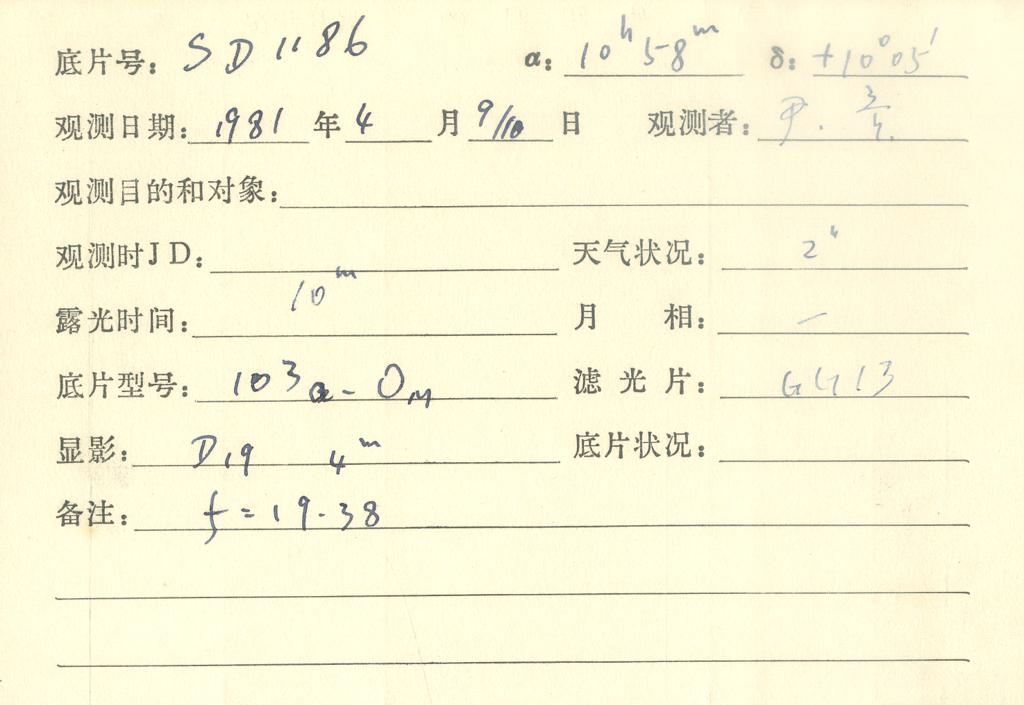 底片号: SD1186 α: 10ʰ58ᵐ δ: +10°05′
观测日期: 1981 年 4 月 9/10 日 观测者: 尹.
观测目的和对象:
观测时JD: 天气状况: 2"
露光时间: 10ᵐ 月 相: —
底片型号: 103a-O 滤光片: GG13
显影: D19 4ᵐ 底片状况:
备注: f=19.38